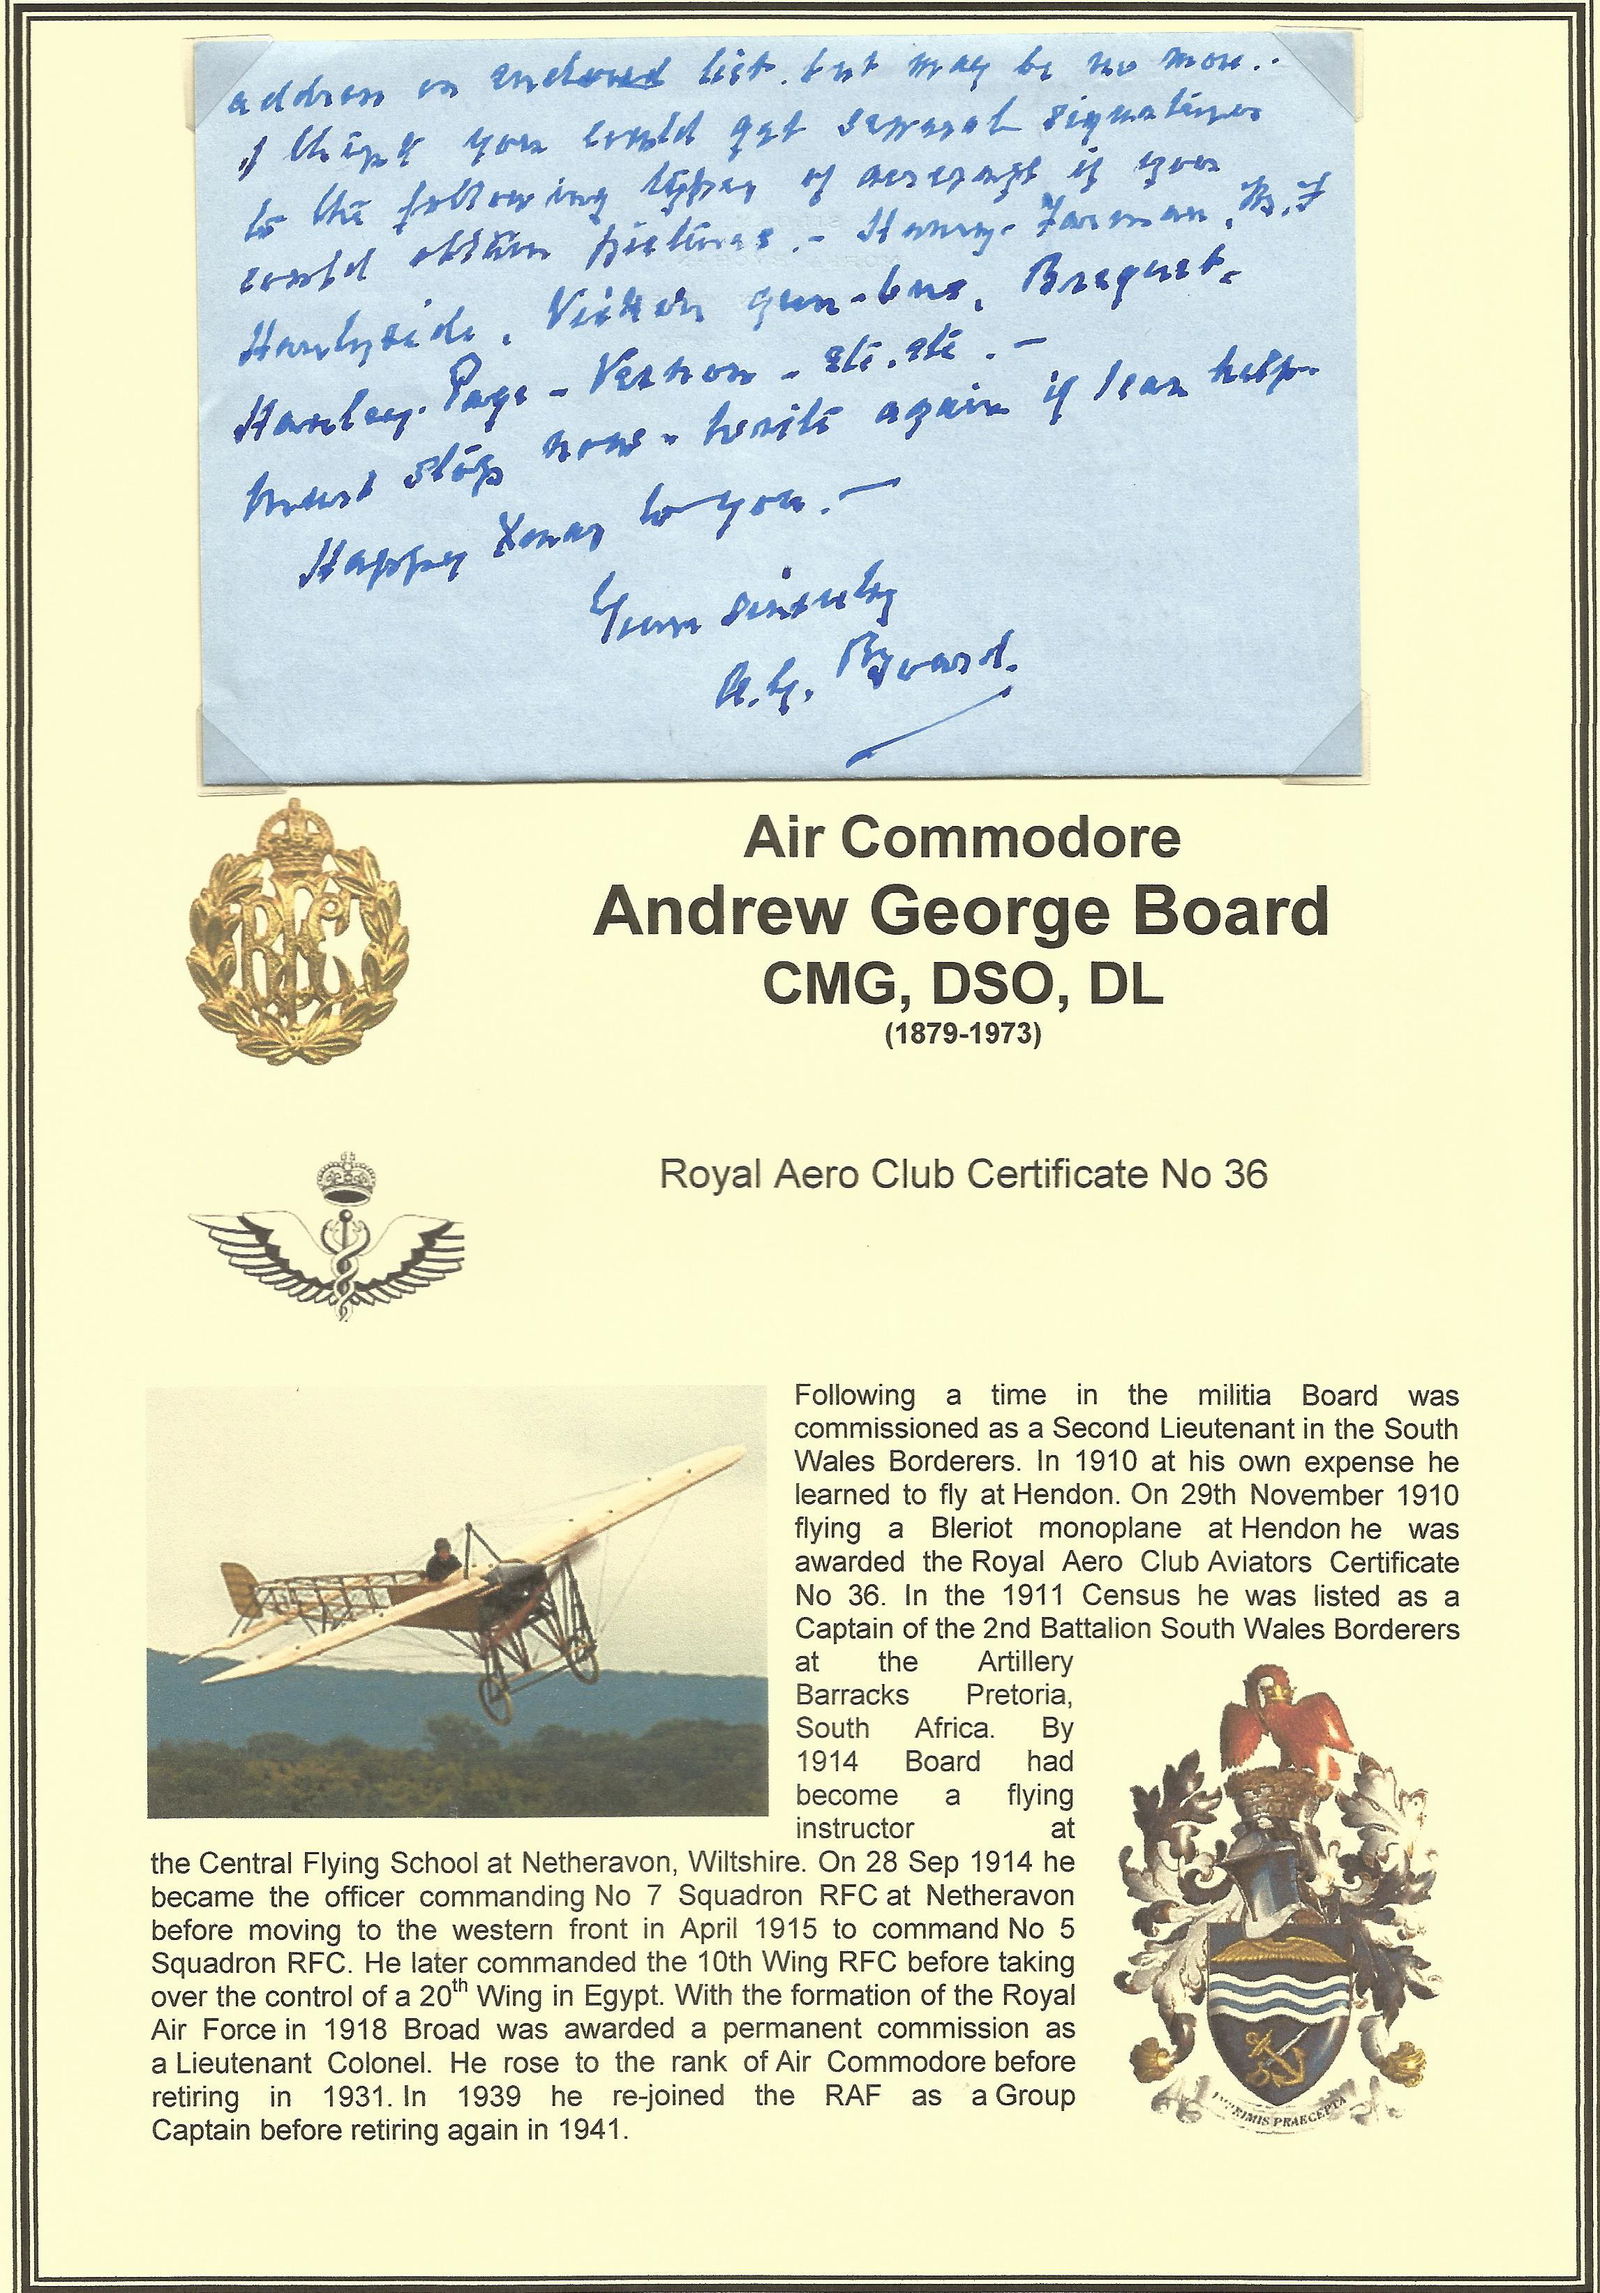 address on enclosed list. but may be no more..
I think you could get several signatures
to the following types of aircraft if you
could obtain pictures. - Henry-Farman,
Handyside, Vickers gun-bus, Breguet.
Handley-Page - Vernon - etc. etc. -
must stop now - write again if I can help.
Happy Xmas to you. -
Yours sincerely
A.G. Board.
Air Commodore
Andrew George Board
CMG, DSO, DL
(1879-1973)
Royal Aero Club Certificate No 36
Following a time in the militia Board was
commissioned as a Second Lieutenant in the South
Wales Borderers. In 1910 at his own expense he
learned to fly at Hendon. On 29th November 1910
flying a Bleriot monoplane at Hendon he was
awarded the Royal Aero Club Aviators Certificate
No 36. In the 1911 Census he was listed as a
Captain of the 2nd Battalion South Wales Borderers
at the Artillery
Barracks Pretoria,
South Africa. By
1914 Board had
become a flying
instructor at
the Central Flying School at Netheravon, Wiltshire. On 28 Sep 1914 he
became the officer commanding No 7 Squadron RFC at Netheravon
before moving to the western front in April 1915 to command No 5
Squadron RFC. He later commanded the 10th Wing RFC before taking
over the control of a 20th Wing in Egypt. With the formation of the Royal
Air Force in 1918 Broad was awarded a permanent commission as
a Lieutenant Colonel. He rose to the rank of Air Commodore before
retiring in 1931. In 1939 he re-joined the RAF as a Group
Captain before retiring again in 1941.
IMPRIMIS PRAECEPTA